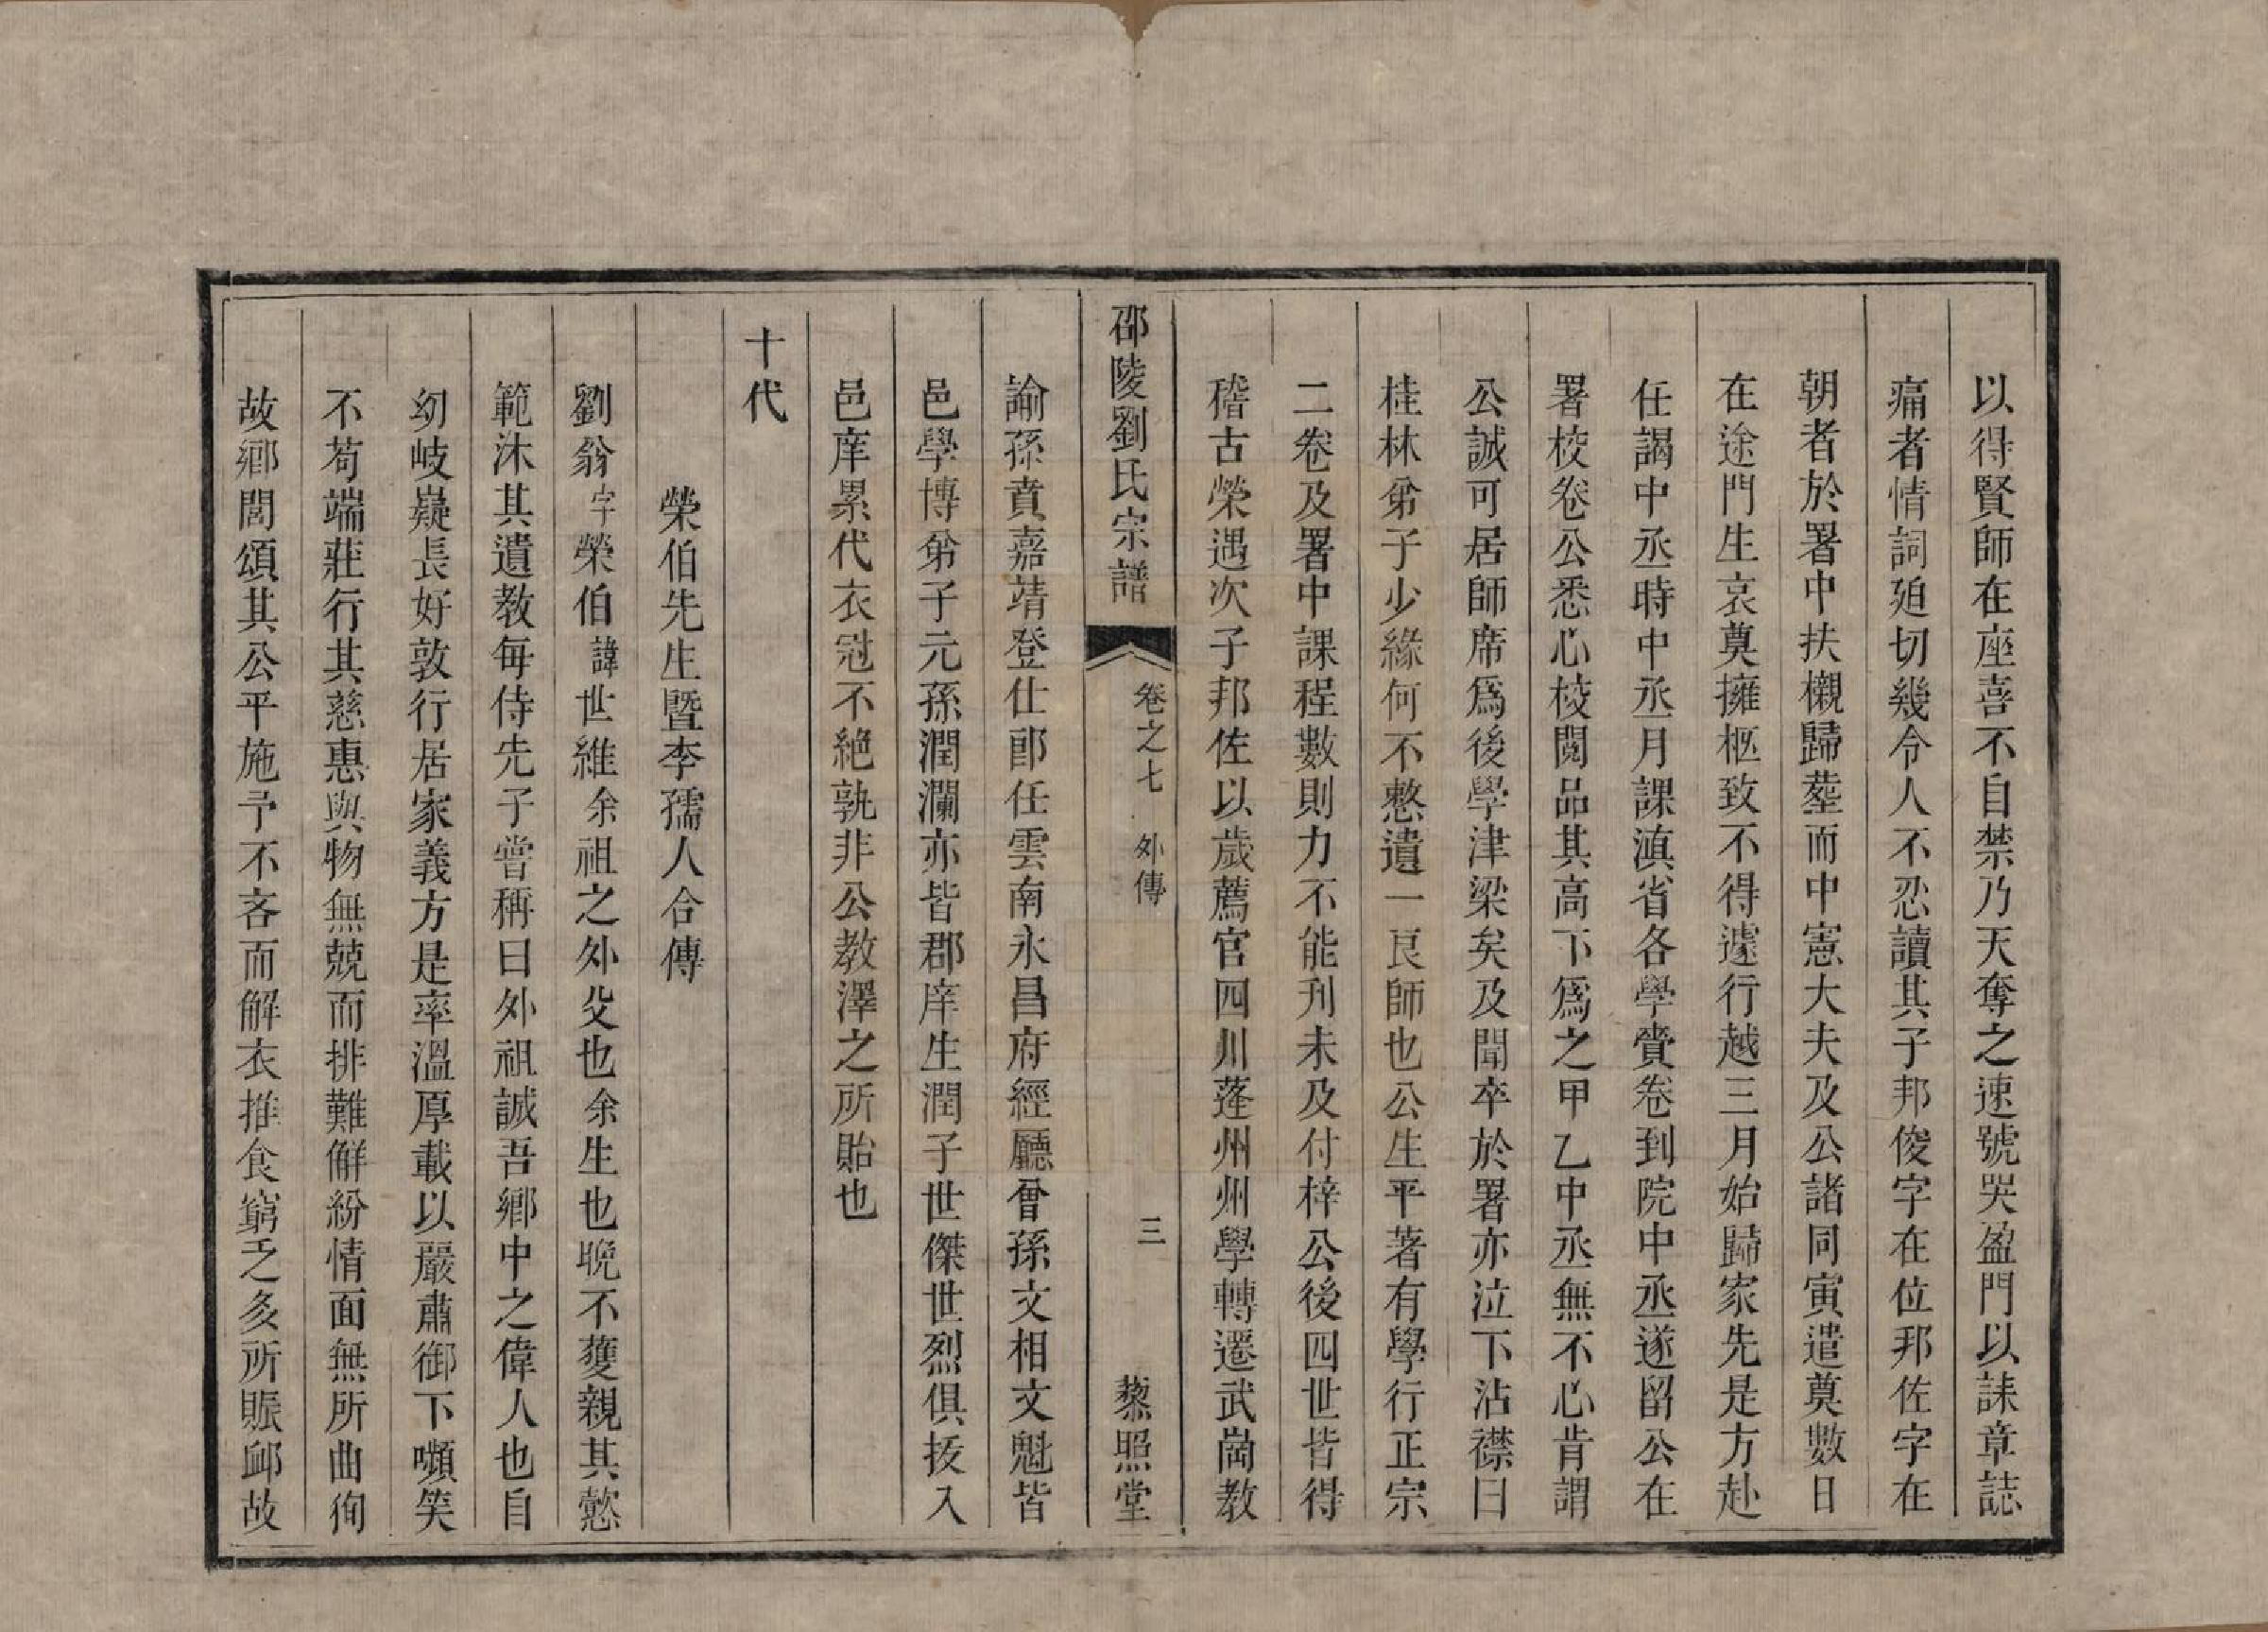 以得賢師在座喜不自禁乃天奪之速號哭盈門以誄章誌
痛者情詞廹切幾令人不忍讀其子邦俊字在位邦佐字在
朝者於署中扶櫬歸塟而中憲大夫及公諸同寅遣奠數日
在途門生哀奠擁柩致不得遽行越三月始歸家先是方赴
任謁中丞時中丞月課滇省各學賫卷到院中丞遂留公在
署校卷公悉心校閱品其高下為之甲乙中丞無不心肯謂
公誠可居師席為後學津梁矣及聞卒於署亦泣下沾襟曰
桂林弟子少緣何不憖遺一良師也公生平著有學行正宗
二卷及署中課程數則力不能刋未及付梓公後四世皆得
稽古榮遇次子邦佐以歲薦官四川蓬州州學轉遷武崗教
邵陵劉氏宗譜 卷之七 外傳 三 藜照堂
諭孫賁嘉靖登仕郎任雲南永昌府經廳曾孫文相文魁皆
邑學博弟子元孫潤瀾亦皆郡庠生潤子世傑世烈俱拔入
邑庠累代衣冠不絕孰非公教澤之所貽也
十代
榮伯先生暨李孺人合傳
劉翁字榮伯諱世維余祖之外父也余生也晚不獲親其懿
範沐其遺教每侍先子嘗稱曰外祖誠吾鄉中之偉人也自
幼岐嶷長好敦行居家義方是率溫厚載以嚴肅御下嚬笑
不苟端莊行其慈惠與物無競而排難解紛情面無所曲徇
故鄉閭頌其公平施予不吝而解衣推食窮乏多所賑卹故